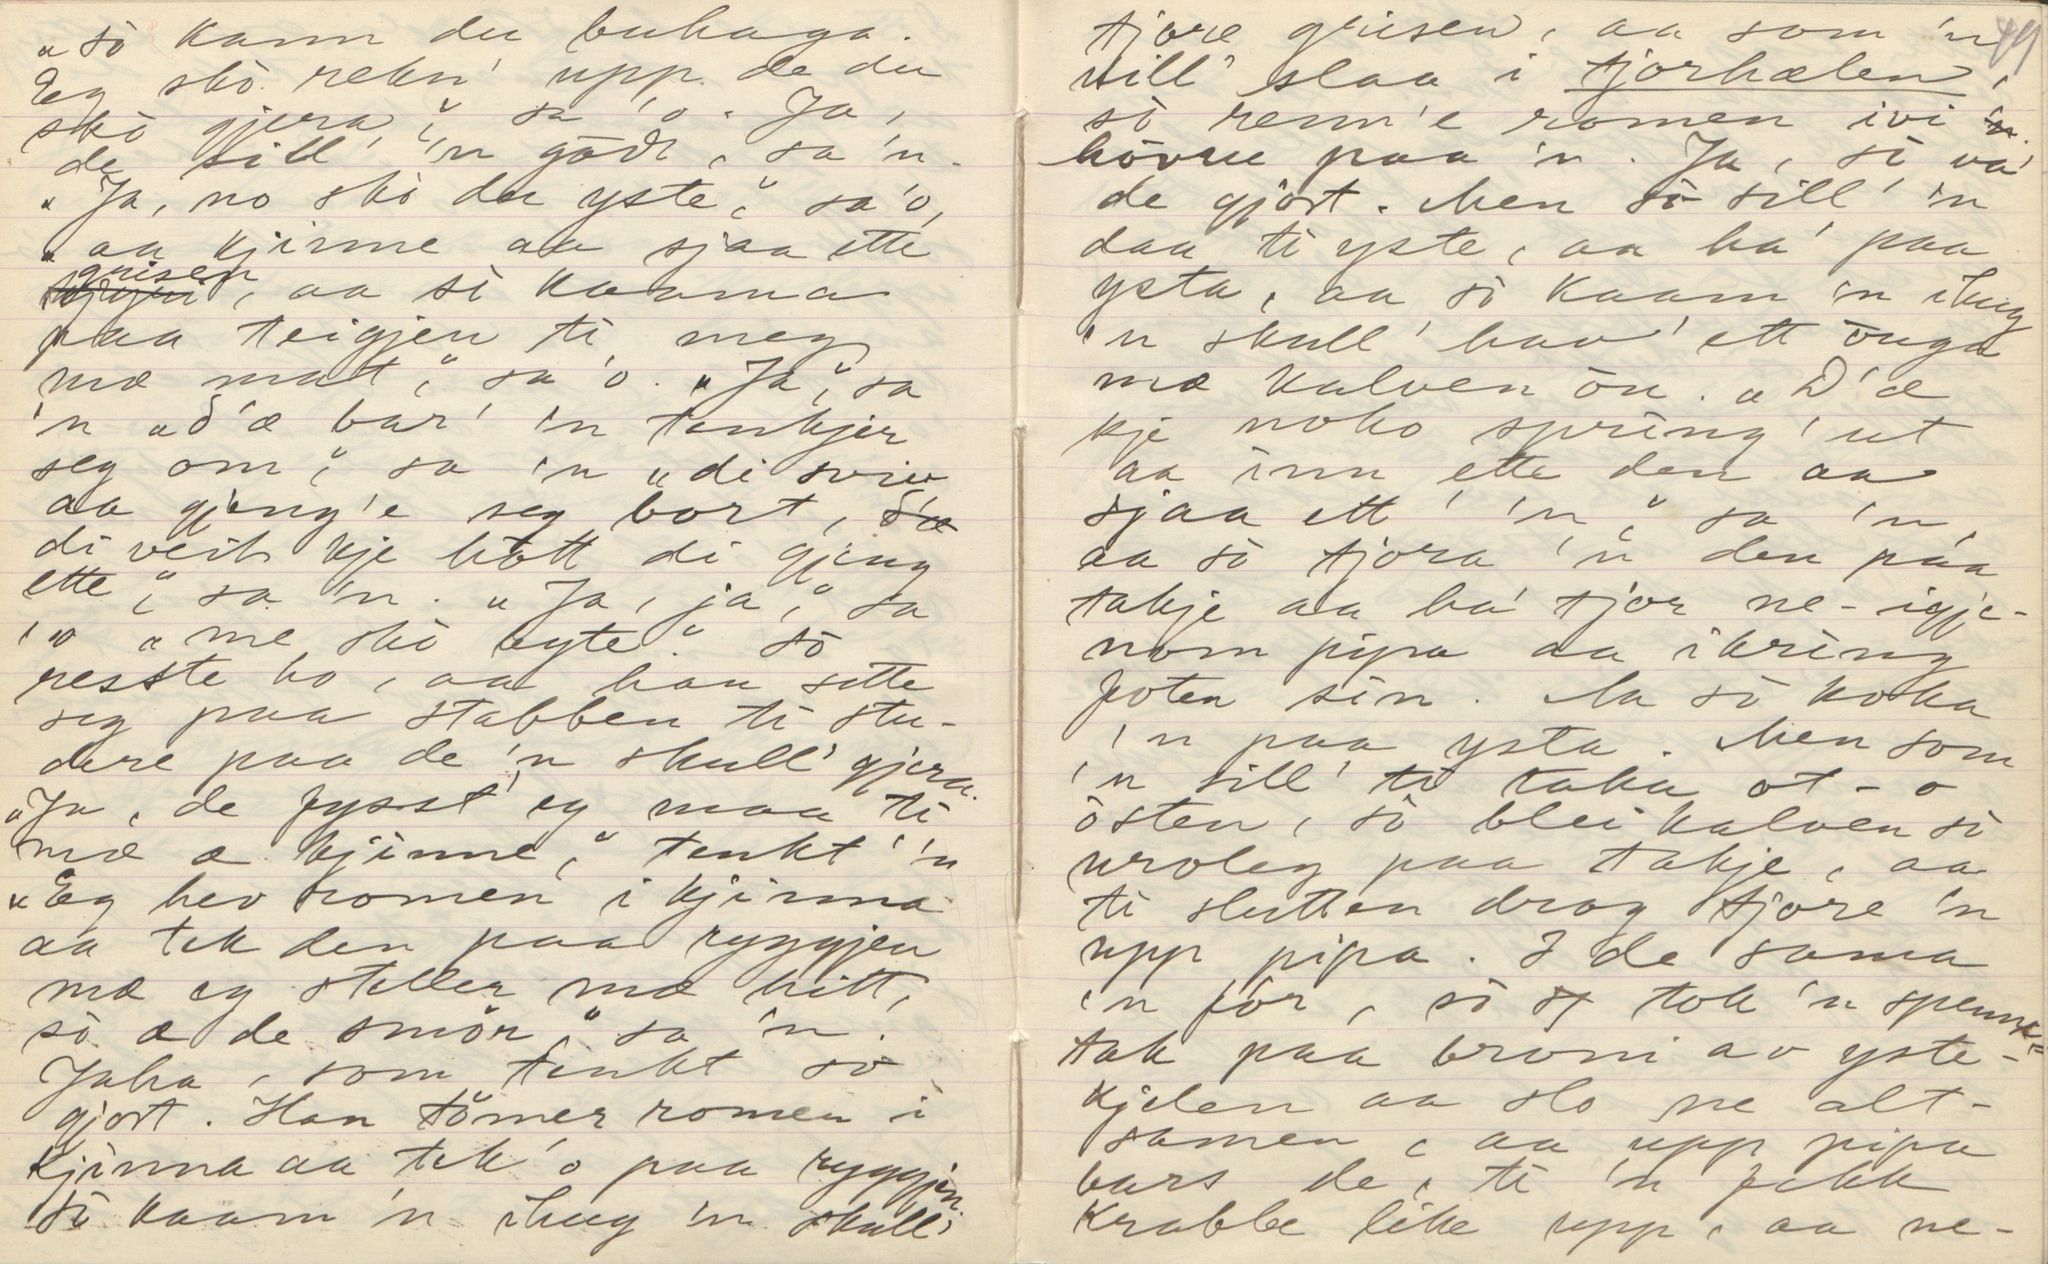 „sò kann du buhaga.
Eg skò rekn' upp de du
skò gjera", sa 'o. Ja,
de sill' 'n gòdt, sa 'n.
„Ja, no skò du yste", sa 'o,
„aa kjinne aa sjaa ette
grisen, aa sò kaama
paa teigjen ti meg
mæ mat", sa 'o. „Ja", sa
'n „d'æ bar' 'n tenkjer
seg om", sa 'n „di sviv
aa gjeng'e seg bort,
di veit kje hòtt di gjeng
ette", sa 'n. „Ja, ja", sa
'o „me skò byte." Sò
resste ho, aa han sette
seg paa stabben ti stu-
dere paa de 'n skull' gjera.
„Ja, de fysst' eg maa ti
mæ æ kjinne", tenkt' 'n
„Eg hev romen i kjinna
aa tek den paa ryggjen
mæ eg steller mæ hitt,
sò æ de smör", sa 'n.
Jaha, som tenkt so
gjort. Han tömer romen i
kjinna aa tek 'o paa ryggjen.
Sò kaam 'n ihug 'n skull'
49
tjore grisen, aa som 'n
sill' slaa i tjorhælen,
sò renn'e romen ivi
hövue paa 'n. Ja, sò va'
de gjort. Men sò sill' 'n
daa ti yste, aa ha' paa
ysta, aa sò kaam 'n ihug
'n skull' hav' ett òuga
mæ kalven òu. „D'æ
kje noko spring' ut
aa inn ette den aa
sjaa ett' 'n", sa 'n,
aa sò tjora 'n den paa
takje aa ha' tjor ne-igje-
nom pipa aa ikring
foten sin. Aa sò koka
'n paa ysta. Men som
'n sill' ti taka ot-o
òsten, sò blei kalven sò
uroleg paa takje, aa
ti slutten drog tjore 'n
upp pipa. I de sama
'n fór, sò tok 'n spenn-
tak paa broni av yste-
kjelen aa slo ne alt-
samen, aa upp pipa
bars de, ti 'n fekk
krabbe like upp, aa ne-